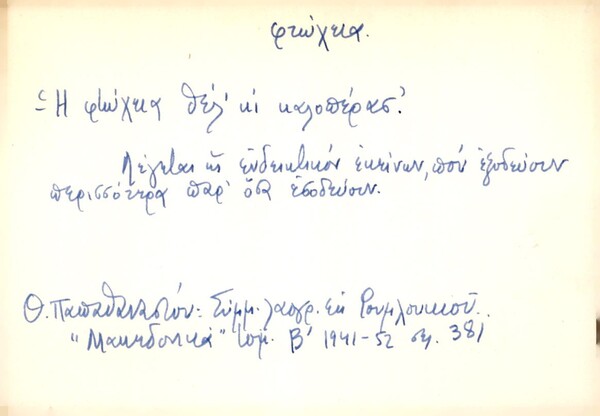 φτώχεια.
- Ἡ φτώχεια θέλ' κι καλοπέρασ'.
Λέγεται ὡς ἐνδεικτικόν ἐκείνων, πού ἐξοδεύουν
περισσότερα παρ' ὅσα ἐσοδεύουν.
Θ. Παπαθανασίου: Σύμμ. λαογρ. ἐκ Ρουμλουκιοῦ.
"Μακεδονικά" τομ. Β' 1941-52 σελ. 381